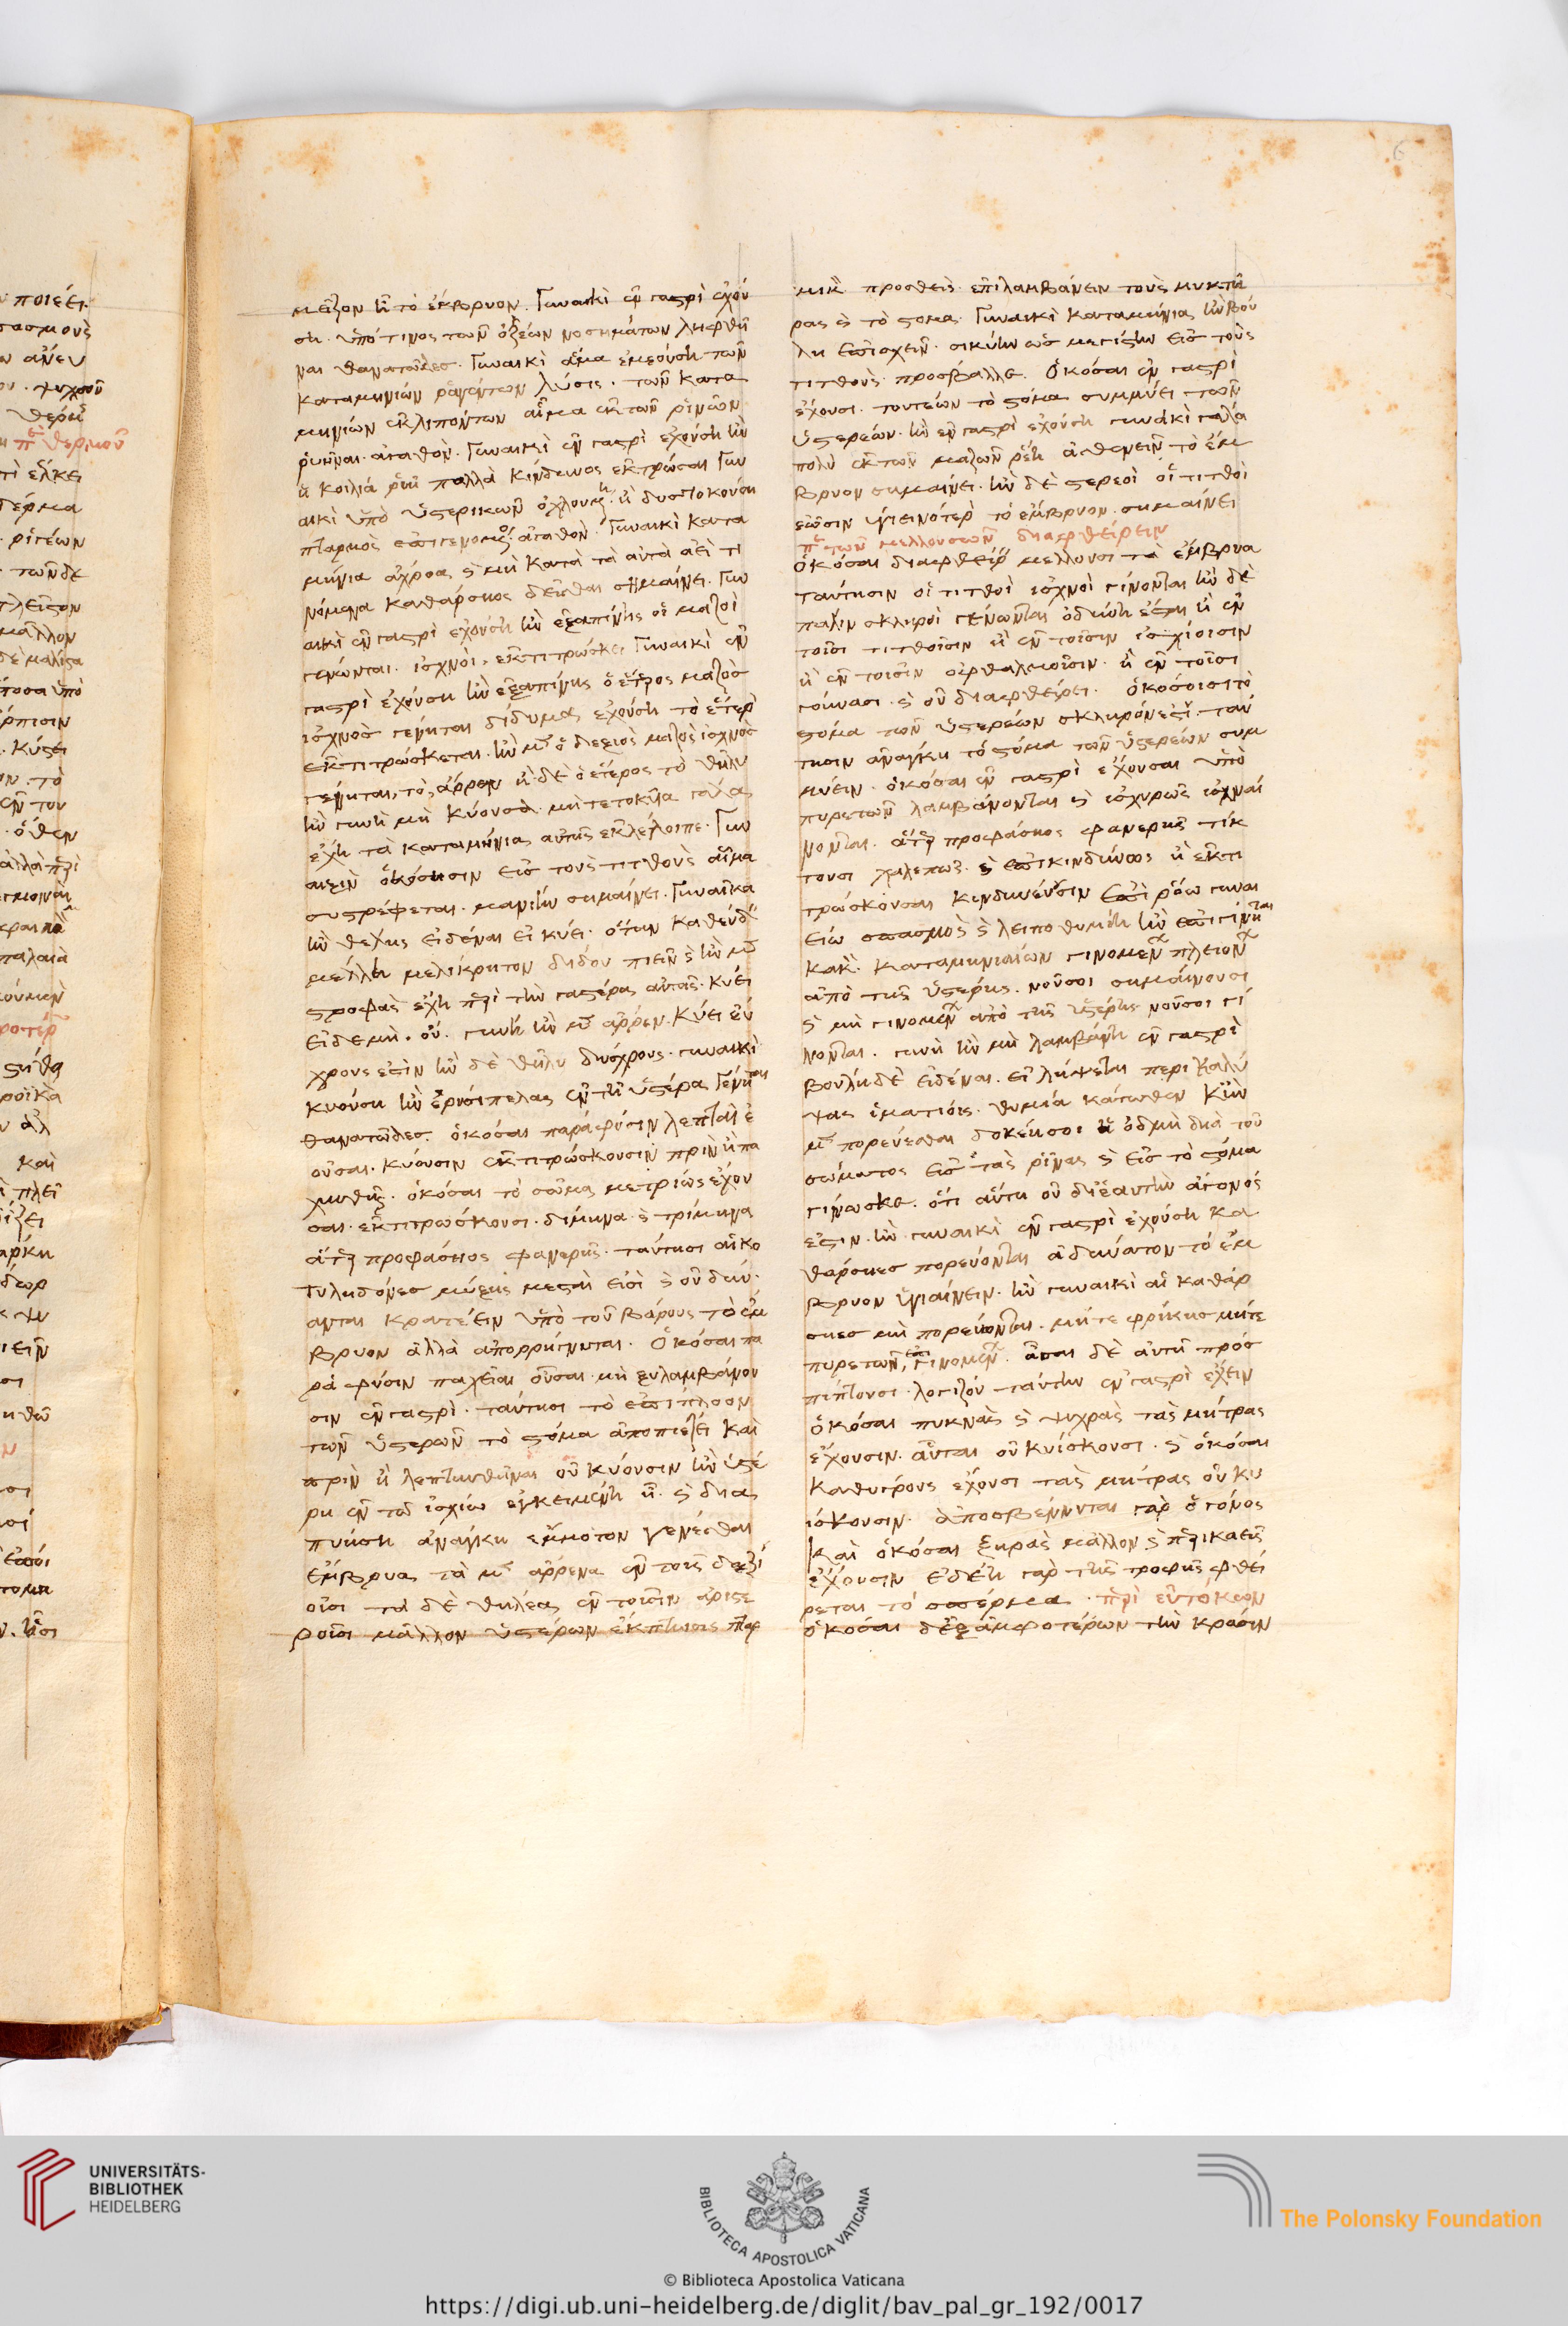 μεῖζον ἦ τὸ ἔμβρυον. Γυναικὶ ἐν γαστρὶ ἐχού
ση. ὑπό τινος τῶν ὀξέων νοσημάτων ληφθῆ
ναι θανατῶδες. Γυναικὶ αἷμα ἐμεούση τῶν
καταμηνίων ῥαγέντων λύσις. τῶν κατα
μηνίων ἐκλιπόντων αἷμα ἐκ τῶν ῥινῶν
ῥυῆναι ἀγαθόν. Γυναικὶ ἐν γαστρὶ ἐχούση ἢν
ἡ κοιλιὰ ῥυῆ πολλὰ κίνδυνος ἐκτρῶσαι Γυν
αικὶ ὑπὸ ὑστερικῶν ὀχλουμένη. ἢ δυστοκούση
πταρμὸς ἐπιγενόμενος ἀγαθόν. Γυναικὶ κατα
μήνια ἄχροα, καὶ μὴ κατὰ τὰ αὐτὰ ἀεὶ γι
νόμενα καθάρσιος δεῖσθαι σημαίνει. Γυν
αικὶ ἐν γαστρὶ ἐχούση ἢν ἐξαπίνης οἱ μαζοὶ
γένωνται ἰσχνοί, ἐκτιτρώσκει Γυναικὶ ἐν
γαστρὶ ἐχούση ἢν ἐξαπίνης ὁ ἕτερος μαζὸς
ἰσχνὸς γένηται δίδυμα ἐχούση τὸ ἕτερον
ἐκτιτρώσκεται. ἢν μὲν ὁ δεξιὸς μαζὸς ἰσχνὸς
γένηται, τὸ ἄρρεν ἢ δὲ ὁ ἕτερος τὸ θῆλυ
ἢν γυνὴ μὴ κύουσα μὴ τετοκυῖα γάλα
ἔχη τὰ καταμήνια αὐτῆς ἐκλέλοιπε. Γυν
αιξὶν ὁκόσησιν εἰς τοὺς τιτθοὺς αἷμα
συστρέφεται. μανίην σημαίνει. Γυναῖκα
ἢν θέλης εἰδέναι εἰ κύει. ὅταν καθεύδειν
μέλλη μελίκρητον δίδου πιεῖν καὶ ἢν μὲν
στροφὰς ἔχη περὶ τὴν γαστέρα αὐτὰς. κύει
εἰ δὲ μὴ. οὔ. γυνὴ ἢν μὲν ἄρρεν κύει εὔ
χρους ἐστὶν ἢν δὲ θῆλυ δύσχρους. γυναικὶ
κυούση ἢν ἐρυσίπελας ἐν τῆ ὑστέρα γένηται
θανατῶδες. ὁκόσαι παρὰ φύσιν λεπταὶ ἐ
οῦσαι. κύουσιν ἐκτιτρώσκουσιν πρὶν ἢ πα
χυνθῆναι. ὁκόσαι τὸ σῶμα μετρίως ἔχου
σαι. ἐκτιτρώσκουσι. δίμηνα καὶ τρίμηνα
ἄτερ προφάσιος φανερῆς. ταύτησι αἱ κο
τυληδόνες μύξης μεσταὶ εἰσὶ καὶ οὐ δύν
ανται κρατέειν ὑπὸ τοῦ βάρους τὸ ἔμ
βρυον ἀλλὰ ἀπορρήγνυται. Ὁκόσαι πα
ρὰ φύσιν παχεῖαι οὖσαι μὴ ξυλαμβάνου
σιν ἐν γαστρὶ. ταύτησι τὸ ἐπίπλοον
τῶν ὑστερῶν τὸ στόμα ἀποπιέζει καὶ
πρὶν ἢ λεπτυνθῆναι οὐ κύουσιν ἢν ὑστέ
ρη ἐν τῶ ἰσχίω ἐγκειμένη ἦ. καὶ δια
πυήση ἀνάγκη ἔμμοτον γενέσθαι
ἔμβρυα τὰ μὲν ἄρρενα ἐν τοῖς δεξι
οῖσι τὰ δὲ θήλεα ἐν τοῖσιν ἀριστε
ροῖσι μᾶλλον ὑστέρων ἐκπτωσις πταρ
μικὸν προσθεὶς ἐπιλαμβάνειν τοὺς μυκτῆ
ρας καὶ τὸ στόμα. Γυναικὶ καταμήνια ἢν βού
λη ἐπισχεῖν. σικύην ὡς μεγίστην εἰς τοὺς
τιτθοὺς προσβάλλε. Ὁκόσαι ἐν γαστρὶ
ἔχουσι. τουτέων τὸ στόμα συμμύει τῶν
ὑστερέων. ἢν ἐν γαστρὶ ἐχούση γυναικὶ γάλα
πολὺ ἐκ τῶν μαζῶν ῥέη ἀσθενεῖν τὸ ἔμ
βρυον σημαίνει. ἢν δὲ στερεοὶ οἱ τιτθοὶ
ἔωσιν ὑγιεινότερον τὸ ἔμβρυον σημαίνει
περὶ τῶν μελλουσῶν διαφθείρειν
ὁκόσαι διαφθείρειν μέλλουσι τὰ ἔμβρυα
ταύτησιν οἱ τιτθοὶ ἰσχνοὶ γίνονται ἢν δὲ
πάλιν σκληροὶ γένωνται ὀδύνη ἔσται ἢ ἐν
τοῖσι τιτθοῖσιν ἢ ἐν τοῖσιν ἰσχίοισιν
ἢ ἐν τοῖσιν ὀφθαλμοῖσιν. ἢ ἐν τοῖσι
γούνασι. καὶ οὐ διαφθείρει. ὁκόσοισι τὸ
στόμα τῶν ὑστερέων σκληρόν ἐστι. ταύ
τησιν ἀνάγκη τὸ στόμα τῶν ὑστερέων συμ
μύειν. ὁκόσαι ἐν γαστρὶ ἔχουσαι ὑπὸ
πυρετῶν λαμβάνονται καὶ ἰσχυρῶς ἰσχναί
νονται. ἄτερ προφάσιος φανερῆς τίκ
τουσι χαλεπῶς. καὶ ἐπικινδύνως ἢ ἐκτι
τρώσκουσαι κινδυνεύουσιν ἐπὶ ῥόω γυναι
κείω σπασμὸς καὶ λειποθυμίη ἢν ἐπιγένηται
κακὸν. καταμηνιαίων γινομένων πλειόνων
ἀπὸ τῆς ὑστέρης. νοῦσοι συμβαίνουσι
καὶ μὴ γινομένων ἀπὸ τῆς ὑστέρης νοῦσοι γί
νονται. γυνὴ ἢν μὴ λαμβάνη ἐν γαστρὶ
βούλη δὲ εἰδέναι. εἰ λήψεται περικαλύ
ψας ἱματίοις. θυμία κάτωθεν κἢν
μὲν πορεύεσθαι δοκέη σοι ἡ ὀδμὴ διὰ τοῦ
σώματος εἰς τὰς ῥῖνας καὶ εἰς τὸ στόμα
γίνωσκε. ὅτι αὕτη οὐ δι' ἑαυτὴν ἄγονός
ἐστιν. ἢν γυναικὶ ἐν γαστρὶ ἐχούση κα
θάρσιες πορεύονται ἀδύνατον τὸ ἔμ
βρυον ὑγιαίνειν. ἢν γυναικὶ αἱ καθάρ
σιες μὴ πορεύονται. μήτε φρίκης μήτε
πυρετῶν, ἐπιγινομένων. ἄσαι δὲ αὐτῆ προσ
πίπτουσι. λογίζου ταύτην ἐν γαστρὶ ἔχειν
ὁκόσαι πυκνὰς καὶ ψυχρὰς τὰς μήτρας
ἔχουσιν. αὗται οὐ κυίσκουσι. καὶ ὁκόσαι
καθύγρους ἔχουσι τὰς μήτρας οὐ κυ
ίσκουσιν. ἀποσβέννυται γὰρ ὁ γόνος
καὶ ὁκόσαι ξηρὰς μᾶλλον καὶ περικαεῖς
ἔχουσιν ἐνδείη γὰρ τῆς τροφῆς φθεί
ρεται τὸ σπέρμα. περὶ εὐτόκων
ὁκόσαι δὲ ἐξ ἀμφοτέρων τὴν κρᾶσιν
UNIVERSITÄTS-
BIBLIOTHEK
HEIDELBERG
BIBLIOTECA APOSTOLICA VATICANA
The Polonsky Foundation
© Biblioteca Apostolica Vaticana
https://digi.ub.uni-heidelberg.de/diglit/bav_pal_gr_192/0017